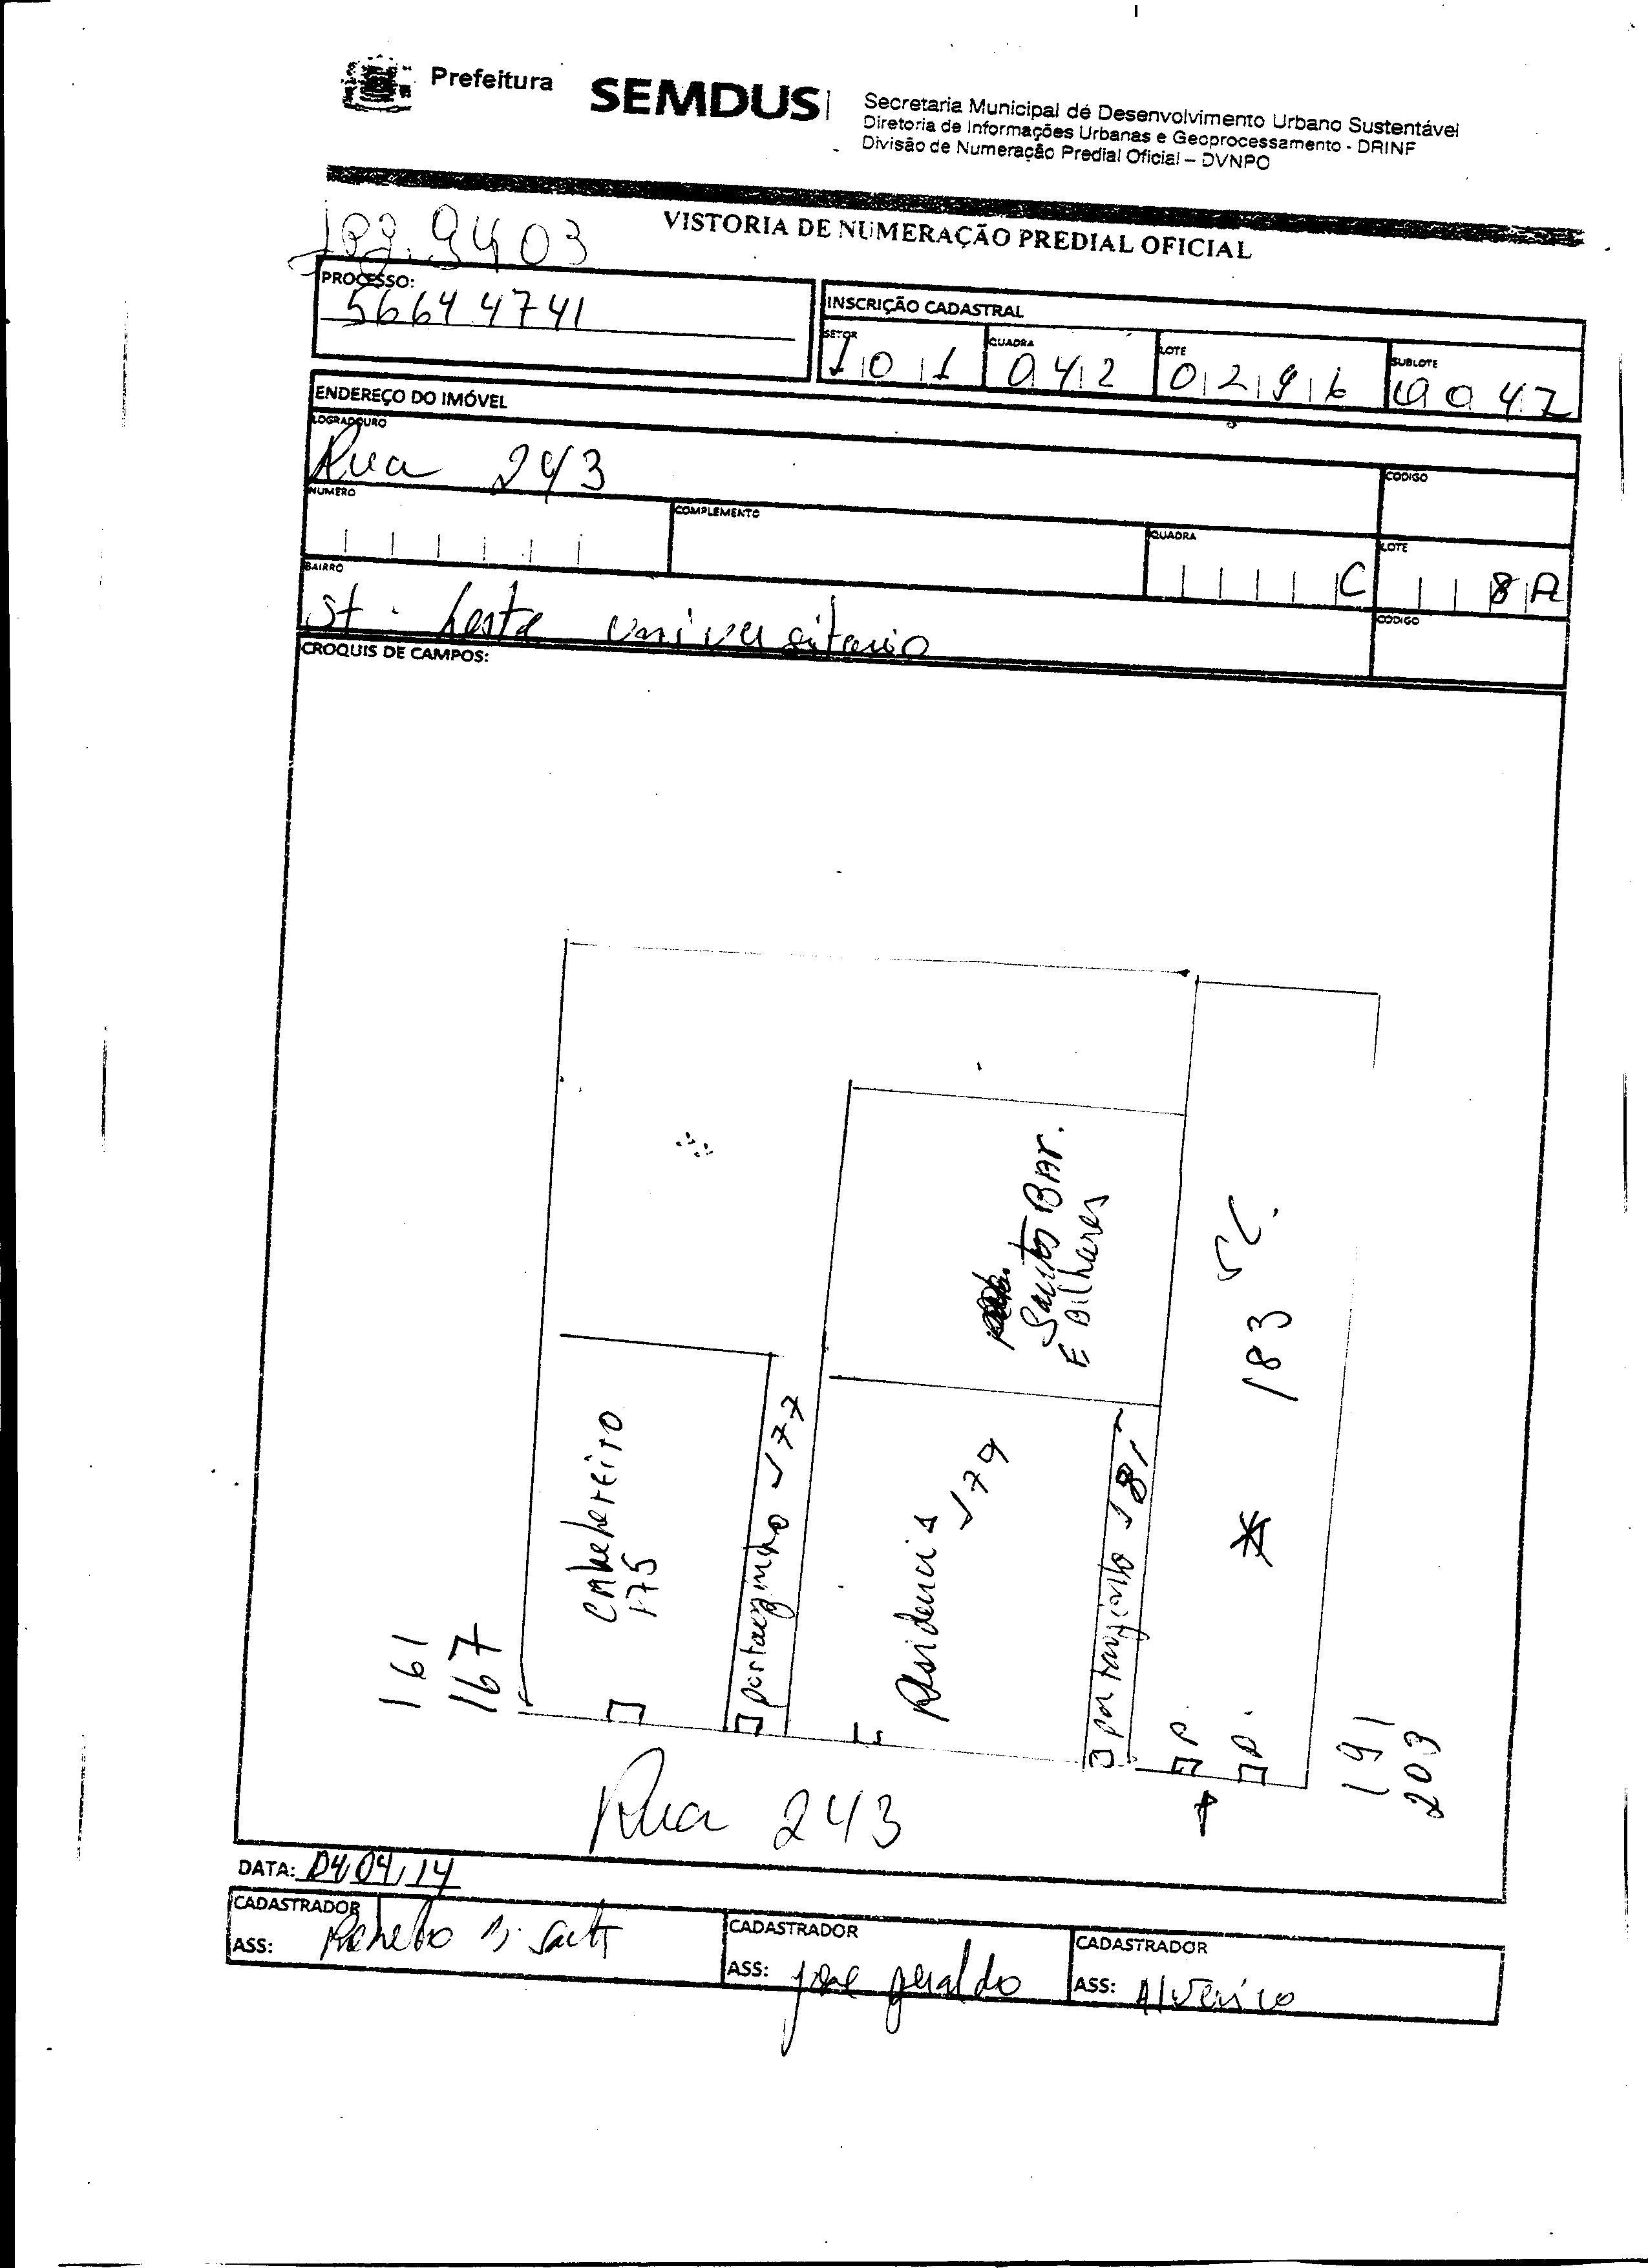 Prefeitura
SEMDUS
Secretaria Municipal de Desenvolvimento Urbano Sustentável
Diretoria de Informações Urbanas e Geoprocessamento - DRINF
Divisão de Numeração Predial Oficial – DVNPO
VISTORIA DE NUMERAÇÃO PREDIAL OFICIAL
9403
PROCESSO:
56644741
INSCRIÇÃO CADASTRAL
SETOR
101
QUADRA
042
LOTE
0296
SUBLOTE
0047
ENDEREÇO DO IMÓVEL
LOGRADOURO
Rua 243
CODIGO
NUMERO
COMPLEMENTO
QUADRA
C
LOTE
8A
BAIRRO
St. Leste universitario
CODIGO
CROQUIS DE CAMPOS:
161
167
Cabeleireiro
175
portaozinho 177
Residencia 179
Santos Bar.
E Bilhares
portaozinho 181
P.
P.
183
191
203
Rua 243
DATA: 04/04/14
CADASTRADOR
ASS:
CADASTRADOR
ASS: jose geraldo
CADASTRADOR
ASS: